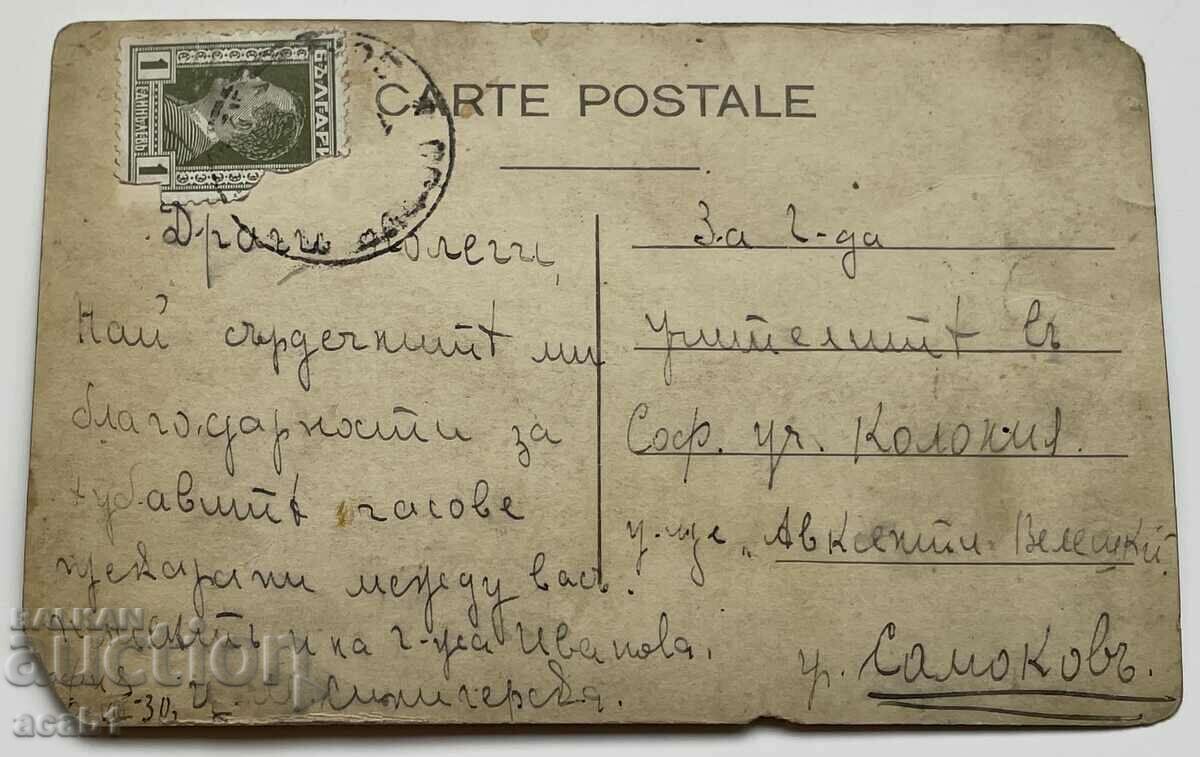 CARTE POSTALE
1
БЪЛГАРИ
ЕДИНЪ ЛЕВЪ
1
Драги колеги,
Най сърдечнитѣ ми
благодарности за
хубавитѣ часове
прекарани между васъ.
и на г-жа Иванова.
30,
За г-да
учителитѣ въ
Соф. уч. Колония.
у-ще „Авксентий Велешки“
гр. Самоковъ.
BALKAN
auction
acab1